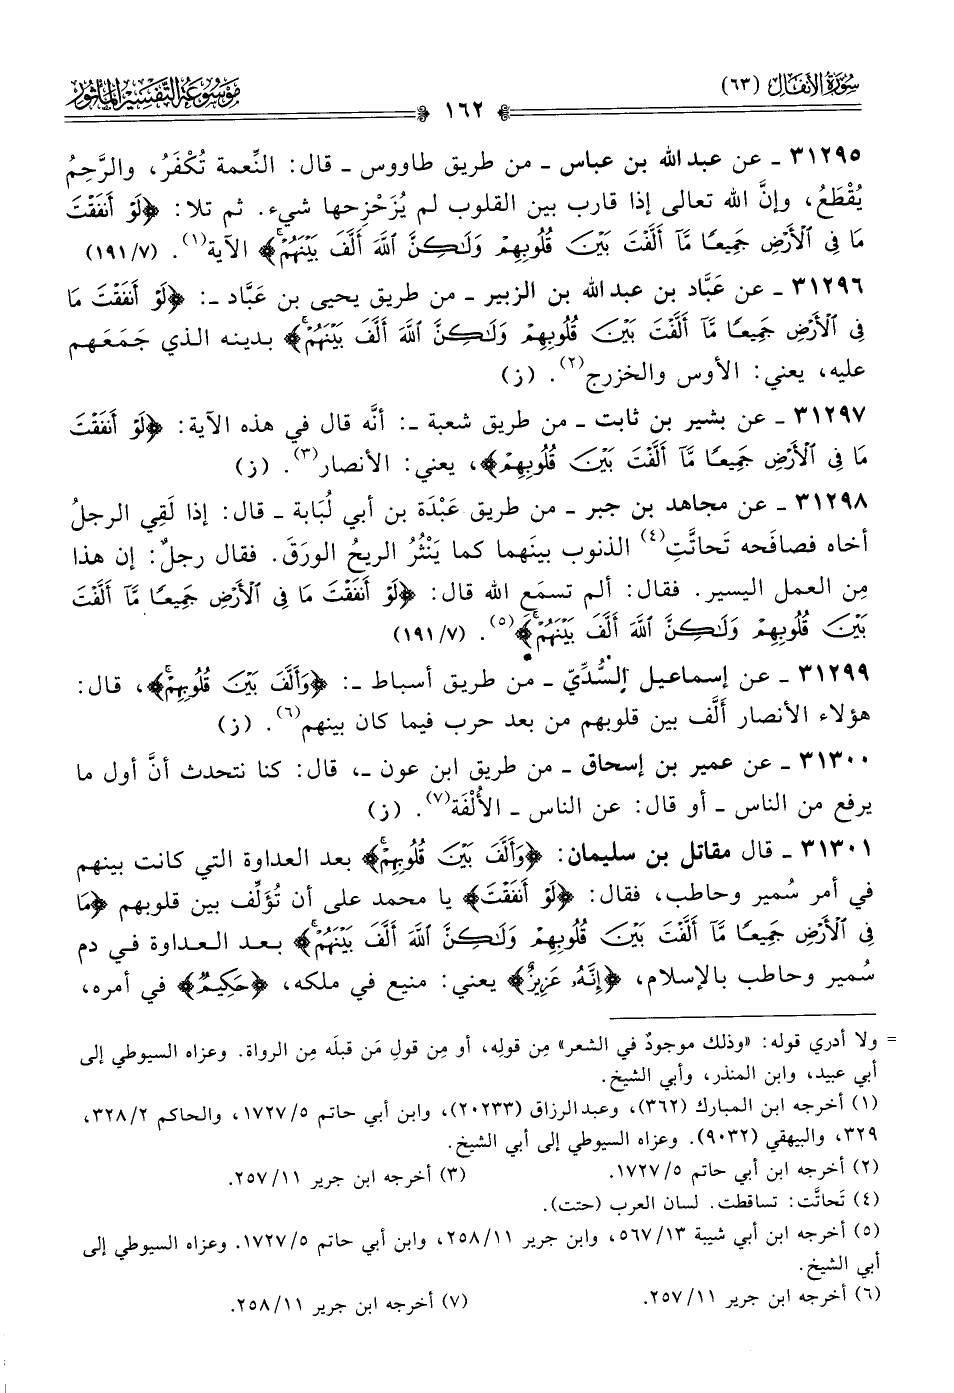 سورة الأنفال (٦٣)
١٦٢
موسوعة التفسير المأثور
٣١٢٩٥ ـ عن عبد الله بن عباس ـ من طريق طاووس ـ قال: النِّعمة تُكْفَرُ، والرَّحِمُ
يُقْطَعُ، وإنَّ الله تعالى إذا قارب بين القلوب لم يُزَحْزِحها شيء. ثم تلا: ﴿لَوْ أَنفَقْتَ
مَا فِي ٱلْأَرْضِ جَمِيعًا مَّآ أَلَّفْتَ بَيْنَ قُلُوبِهِمْ وَلَٰكِنَّ ٱللَّهَ أَلَّفَ بَيْنَهُمْ ۚ﴾ الآية(١). (٧/ ١٩١)
٣١٢٩٦ ـ عن عَبَّاد بن عبد الله بن الزبير ـ من طريق يحيى بن عَبَّاد ـ: ﴿لَوْ أَنفَقْتَ مَا
فِي ٱلْأَرْضِ جَمِيعًا مَّآ أَلَّفْتَ بَيْنَ قُلُوبِهِمْ وَلَٰكِنَّ ٱللَّهَ أَلَّفَ بَيْنَهُمْ ۚ﴾ بدينه الذي جَمَعَهم
عليه، يعني: الأوس والخزرج(٢). (ز)
٣١٢٩٧ ـ عن بشير بن ثابت ـ من طريق شعبة ـ: أنَّه قال في هذه الآية: ﴿لَوْ أَنفَقْتَ
مَا فِي ٱلْأَرْضِ جَمِيعًا مَّآ أَلَّفْتَ بَيْنَ قُلُوبِهِمْ﴾، يعني: الأنصار(٣). (ز)
٣١٢٩٨ ـ عن مجاهد بن جبر ـ من طريق عَبْدَة بن أبي لُبَابة ـ قال: إذا لَقِي الرجلُ
أخاه فصافحه تَحاتَّتِ(٤) الذنوب بينَهما كما يَنْثُرُ الريحُ الورَقَ. فقال رجلٌ: إن هذا
مِن العمل اليسير. فقال: ألم تسمَعِ الله قال: ﴿لَوْ أَنفَقْتَ مَا فِي ٱلْأَرْضِ جَمِيعًا مَّآ أَلَّفْتَ
بَيْنَ قُلُوبِهِمْ وَلَٰكِنَّ ٱللَّهَ أَلَّفَ بَيْنَهُمْ ۚ﴾(٥). (٧/ ١٩١)
٣١٢٩٩ ـ عن إسماعيل السُّدِّيّ ـ من طريق أسباط ـ: ﴿وَأَلَّفَ بَيْنَ قُلُوبِهِمْ ۚ﴾، قال:
هؤلاء الأنصار أَلَّف بين قلوبهم من بعد حرب فيما كان بينهم(٦). (ز)
٣١٣٠٠ ـ عن عمير بن إسحاق ـ من طريق ابن عون ـ، قال: كنا نتحدث أنَّ أول ما
يرفع من الناس ـ أو قال: عن الناس ـ الأُلْفَة(٧). (ز)
٣١٣٠١ ـ قال مقاتل بن سليمان: ﴿وَأَلَّفَ بَيْنَ قُلُوبِهِمْ ۚ﴾ بعد العداوة التي كانت بينهم
في أمر سُمير وحاطب، فقال: ﴿لَوْ أَنفَقْتَ﴾ يا محمد على أن تُؤَلِّف بين قلوبهم ﴿مَا
فِي ٱلْأَرْضِ جَمِيعًا مَّآ أَلَّفْتَ بَيْنَ قُلُوبِهِمْ وَلَٰكِنَّ ٱللَّهَ أَلَّفَ بَيْنَهُمْ ۚ﴾ بعد العداوة في دم
سُمير وحاطب بالإسلام، ﴿إِنَّهُۥ عَزِيزٌ﴾ يعني: منيع في ملكه، ﴿حَكِيمٌ﴾ في أمره،
= ولا أدري قوله: «وذلك موجودٌ في الشعر» مِن قولِه، أو مِن قولِ مَن قبلَه مِن الرواة. وعزاه السيوطي إلى
أبي عبيد، وابن المنذر، وأبي الشيخ.
(١) أخرجه ابن المبارك (٣٦٢)، وعبد الرزاق (٢٠٢٣٣)، وابن أبي حاتم ٥/ ١٧٢٧، والحاكم ٢/ ٣٢٨،
٣٢٩، والبيهقي (٩٠٣٢). وعزاه السيوطي إلى أبي الشيخ.
(٢) أخرجه ابن أبي حاتم ٥/ ١٧٢٧. (٣) أخرجه ابن جرير ١١/ ٢٥٧.
(٤) تَحاتَّت: تساقطت. لسان العرب (حتت).
(٥) أخرجه ابن أبي شيبة ١٣/ ٥٦٧، وابن جرير ١١/ ٢٥٨، وابن أبي حاتم ٥/ ١٧٢٧. وعزاه السيوطي إلى
أبي الشيخ.
(٦) أخرجه ابن جرير ١١/ ٢٥٧. (٧) أخرجه ابن جرير ١١/ ٢٥٨.